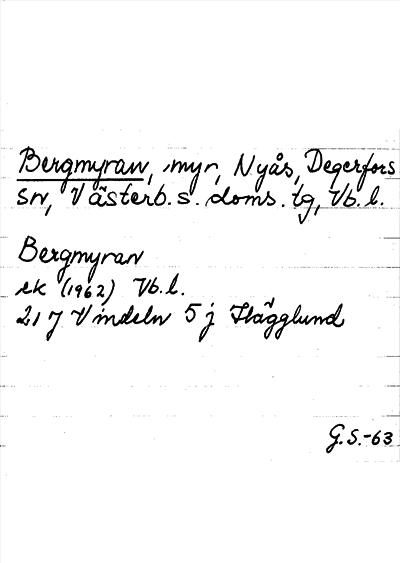 Bergmyran, myr, Nyås, Degerfors
sn, Västerb. s. doms. tg, Vb. l.
Bergmyran
ek (1962) Vb. l.
21 J Vindeln 5 j Hägglund
G.S.-63